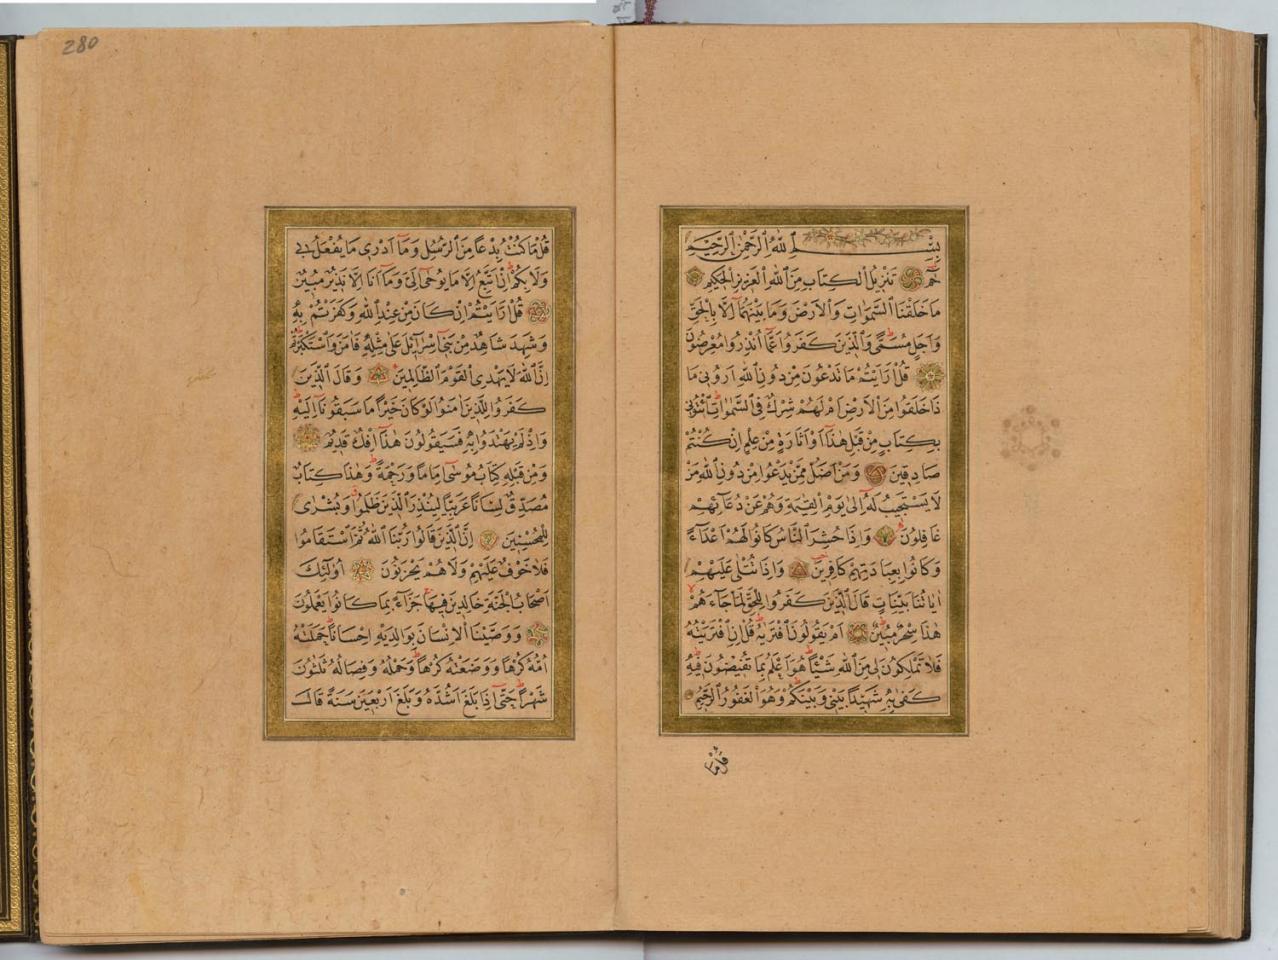 بِسْمِ اللّٰهِ الرَّحْمٰنِ الرَّحِيمِ
حٰمٓ تَنْزِيلُ الْكِتَابِ مِنَ اللّٰهِ الْعَزِيزِ الْحَكِيمِ
مَا خَلَقْنَا السَّمٰوَاتِ وَالْاَرْضَ وَمَا بَيْنَهُمَٓا اِلَّا بِالْحَقِّ
وَاَجَلٍ مُسَمًّى وَالَّذِينَ كَفَرُوا عَمَّٓا اُنْذِرُوا مُعْرِضُونَ
قُلْ اَرَاَيْتُمْ مَا تَدْعُونَ مِنْ دُونِ اللّٰهِ اَرُونِي مَا
ذَا خَلَقُوا مِنَ الْاَرْضِ اَمْ لَهُمْ شِرْكٌ فِي السَّمٰوَاتِ ائْتُونِي
بِكِتَابٍ مِنْ قَبْلِ هٰذَٓا اَوْ اَثَارَةٍ مِنْ عِلْمٍ اِنْ كُنْتُمْ
صَادِقِينَ وَمَنْ اَضَلُّ مِمَّنْ يَدْعُوا مِنْ دُونِ اللّٰهِ مَنْ
لَا يَسْتَجِيبُ لَهُٓ اِلٰى يَوْمِ الْقِيٰمَةِ وَهُمْ عَنْ دُعَٓائِهِمْ
غَافِلُونَ وَاِذَا حُشِرَ النَّاسُ كَانُوا لَهُمْ اَعْدَٓاءً
وَكَانُوا بِعِبَادَتِهِمْ كَافِرِينَ وَاِذَا تُتْلٰى عَلَيْهِمْ
اٰيَاتُنَا بَيِّنَاتٍ قَالَ الَّذِينَ كَفَرُوا لِلْحَقِّ لَمَّا جَٓاءَهُمْ
هٰذَا سِحْرٌ مُبِينٌ اَمْ يَقُولُونَ افْتَرٰيهُ قُلْ اِنِ افْتَرَيْتُهُ
فَلَا تَمْلِكُونَ لِي مِنَ اللّٰهِ شَيْئًا هُوَ اَعْلَمُ بِمَا تُفِيضُونَ فِيهِ
كَفٰى بِهِ شَهِيدًا بَيْنِي وَبَيْنَكُمْ وَهُوَ الْغَفُورُ الرَّحِيمُ
قُلْ مَا
280
قُلْ مَا كُنْتُ بِدْعًا مِنَ الرُّسُلِ وَمَٓا اَدْرِي مَا يُفْعَلُ بِي
وَلَا بِكُمْ اِنْ اَتَّبِعُ اِلَّا مَا يُوحٰٓى اِلَيَّ وَمَٓا اَنَا اِلَّا نَذِيرٌ مُبِينٌ
قُلْ اَرَاَيْتُمْ اِنْ كَانَ مِنْ عِنْدِ اللّٰهِ وَكَفَرْتُمْ بِهِ
وَشَهِدَ شَاهِدٌ مِنْ بَنِٓي اِسْرَٓائِيلَ عَلٰى مِثْلِهِ فَاٰمَنَ وَاسْتَكْبَرْتُمْ
اِنَّ اللّٰهَ لَا يَهْدِي الْقَوْمَ الظَّالِمِينَ وَقَالَ الَّذِينَ
كَفَرُوا لِلَّذِينَ اٰمَنُوا لَوْ كَانَ خَيْرًا مَا سَبَقُونَٓا اِلَيْهِ
وَاِذْ لَمْ يَهْتَدُوا بِهِ فَسَيَقُولُونَ هٰذَٓا اِفْكٌ قَدِيمٌ
وَمِنْ قَبْلِهِ كِتَابُ مُوسٰٓى اِمَامًا وَرَحْمَةً وَهٰذَا كِتَابٌ
مُصَدِّقٌ لِسَانًا عَرَبِيًّا لِيُنْذِرَ الَّذِينَ ظَلَمُوا وَبُشْرٰى
لِلْمُحْسِنِينَ اِنَّ الَّذِينَ قَالُوا رَبُّنَا اللّٰهُ ثُمَّ اسْتَقَامُوا
فَلَا خَوْفٌ عَلَيْهِمْ وَلَا هُمْ يَحْزَنُونَ اُولٰٓئِكَ
اَصْحَابُ الْجَنَّةِ خَالِدِينَ فِيهَا جَزَٓاءً بِمَا كَانُوا يَعْمَلُونَ
وَوَصَّيْنَا الْاِنْسَانَ بِوَالِدَيْهِ اِحْسَانًا حَمَلَتْهُ
اُمُّهُ كُرْهًا وَوَضَعَتْهُ كُرْهًا وَحَمْلُهُ وَفِصَالُهُ ثَلٰثُونَ
شَهْرًا حَتّٰٓى اِذَا بَلَغَ اَشُدَّهُ وَبَلَغَ اَرْبَعِينَ سَنَةً قَالَ